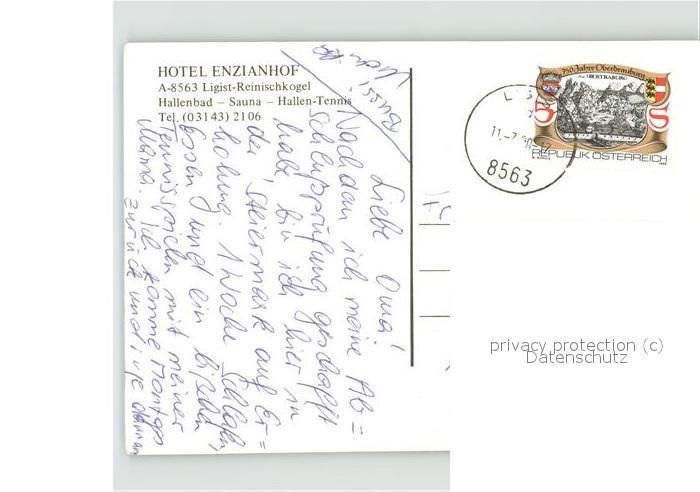 HOTEL ENZIANHOF
A-8563 Ligist-Reinischkogel
Hallenbad – Sauna – Hallen-Tennis
Tel. (03143) 2106
Liebe Oma!
Nachdem ich meine Ab-
schlußprüfung geschafft
habe, bin ich hier in
der Steiermark auf Er=
holung. 1 Woche Schlafen,
Essen und ein bischen
Tennisspielen mit meiner
Mama. Ich komme Montags
zurück und
Bussi
750 Jahre Oberdrauburg
OBERTRABURG
5 S
REPUBLIK ÖSTERREICH
11.-7.90
8563
privacy protection (c)
Datenschutz